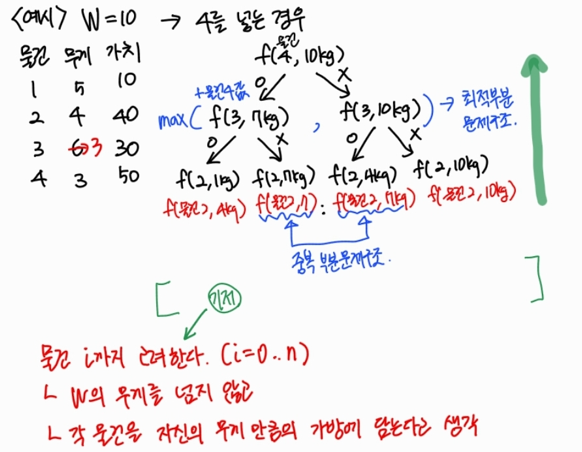 <예시> W=10 → 4를 넣는 경우
물건 무게 가치
1 5 10
2 4 40
3 6→3 30
4 3 50
물건
f(4, 10kg)
O X
+물건4값
max( f(3, 7kg) , f(3, 10kg) ) → 최적부분
문제구조.
O X O X
f(2, 1kg) f(2, 7kg) f(2, 4kg) f(2, 10kg)
f(물건2, 4kg) f(물건2, 7) : f(물건2, 7kg) f(물건2, 10kg)
중복 부분문제구조.
[ 기저 ]
물건 i까지 고려한다. (i=0..n)
ㄴ W의 무게를 넘지 않고
ㄴ 각 물건을 자신의 무게 만큼의 가방에 담는다고 생각